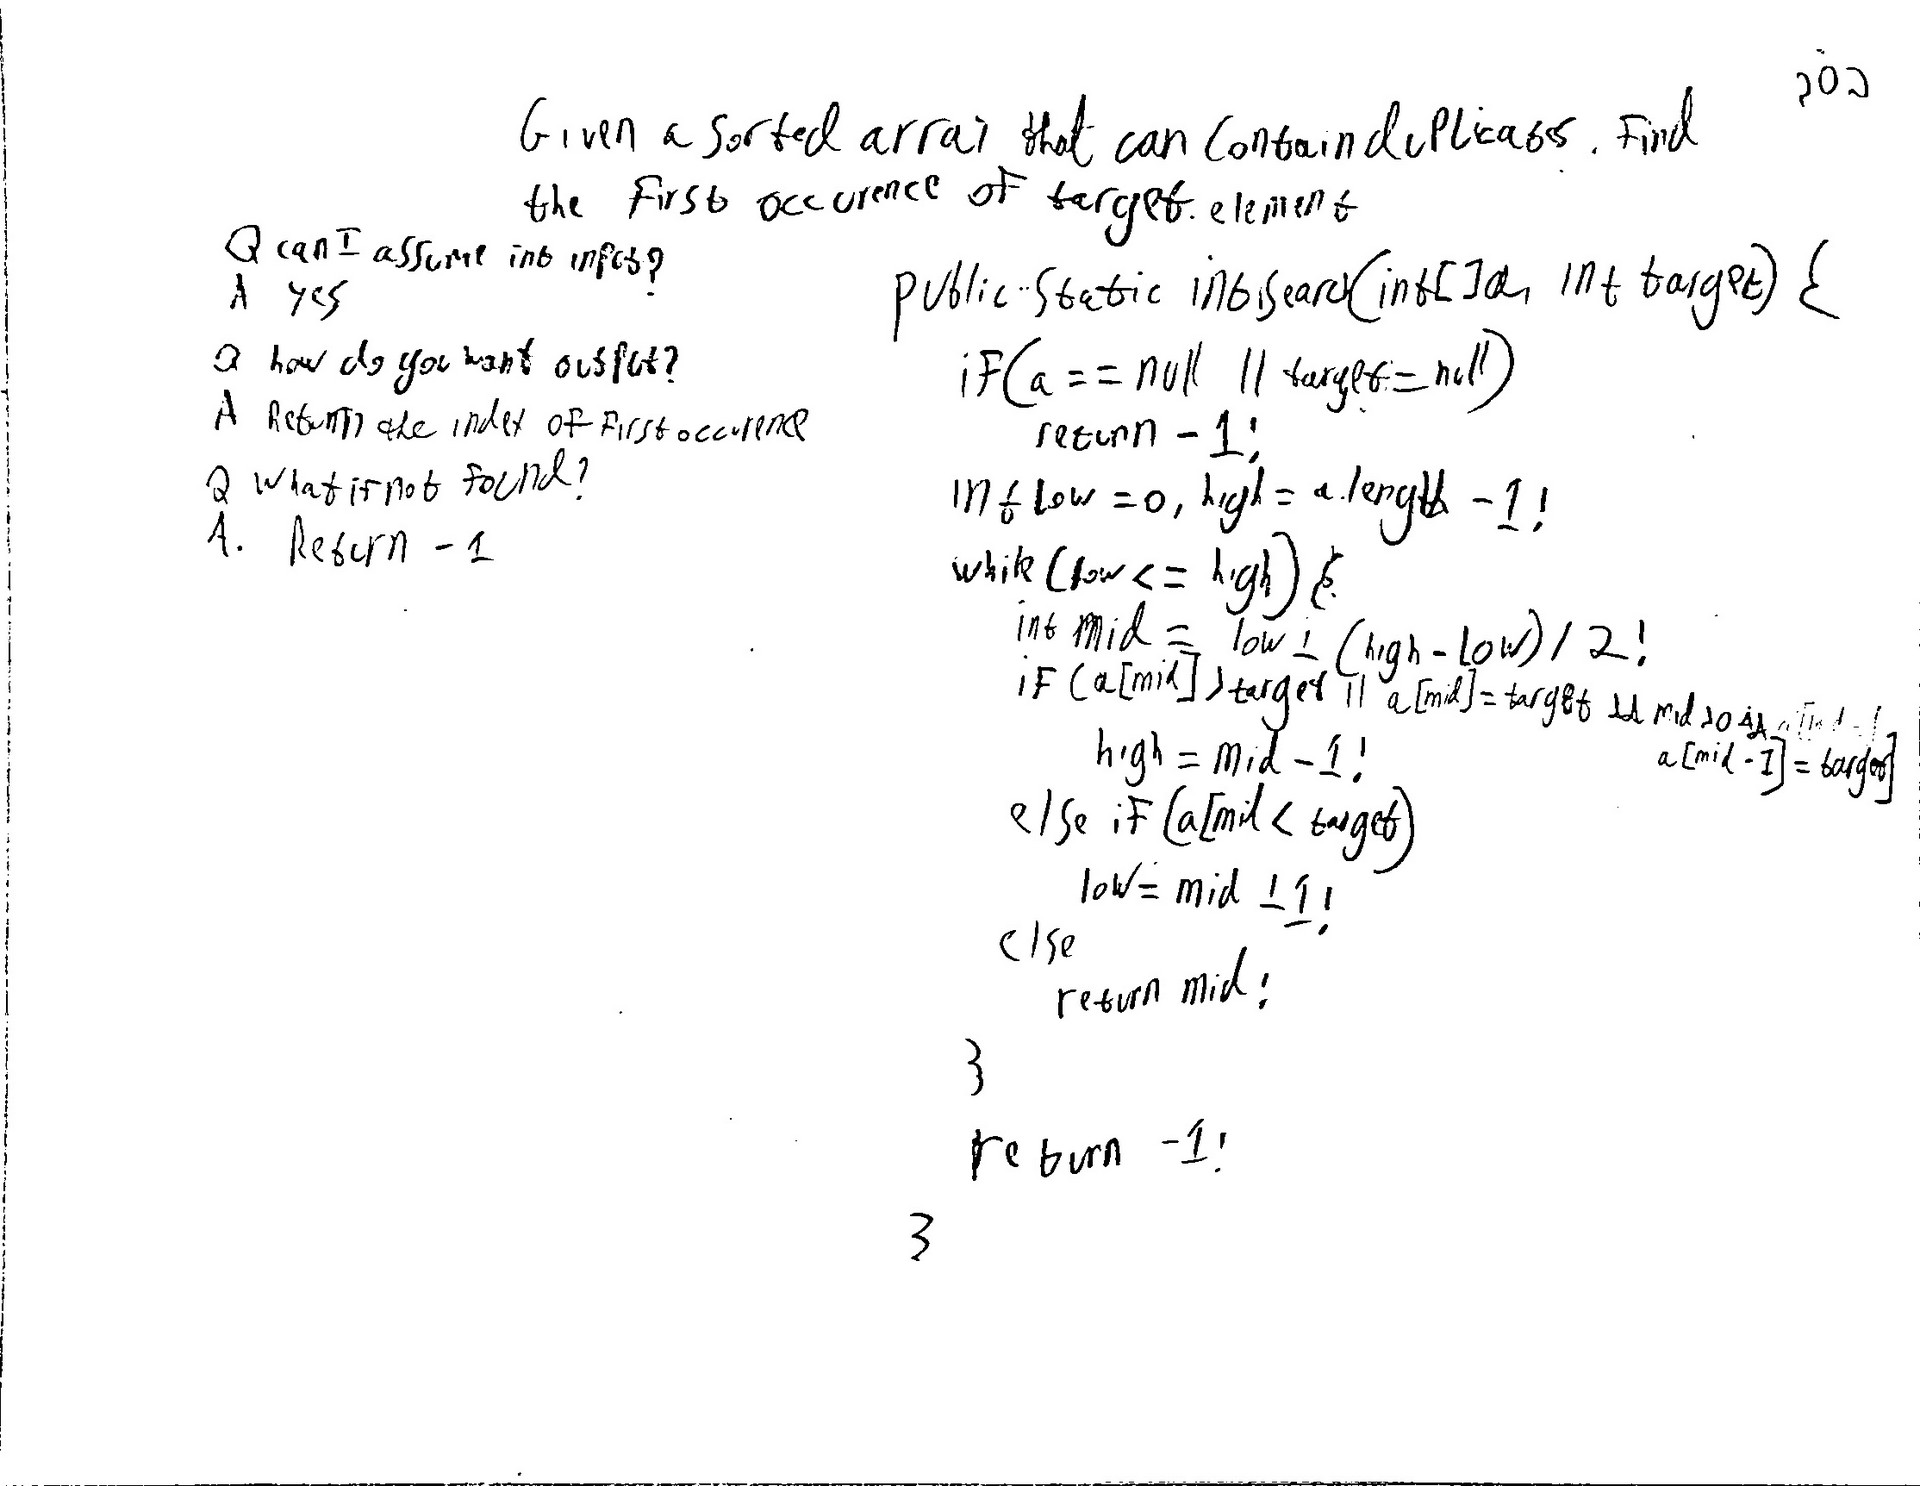 Given a sorted array that can contain duplicates. Find
the First occurence of target element
Q can I assume int input?
A yes
Q how do you want output?
A Return the index of First occurence
Q What if not found?
A. Return -1
public static int search(int[] a, int target) {
if(a == null || target = null)
return -1;
int low = 0, high = a.length -1;
while (low <= high) {
int mid = low + (high - low) / 2;
if (a[mid] > target || a[mid] = target && mid > 0 &&
a[mid - 1] = target]
high = mid -1;
else if (a[mid < target)
low = mid + 1;
else
return mid;
}
return -1;
}